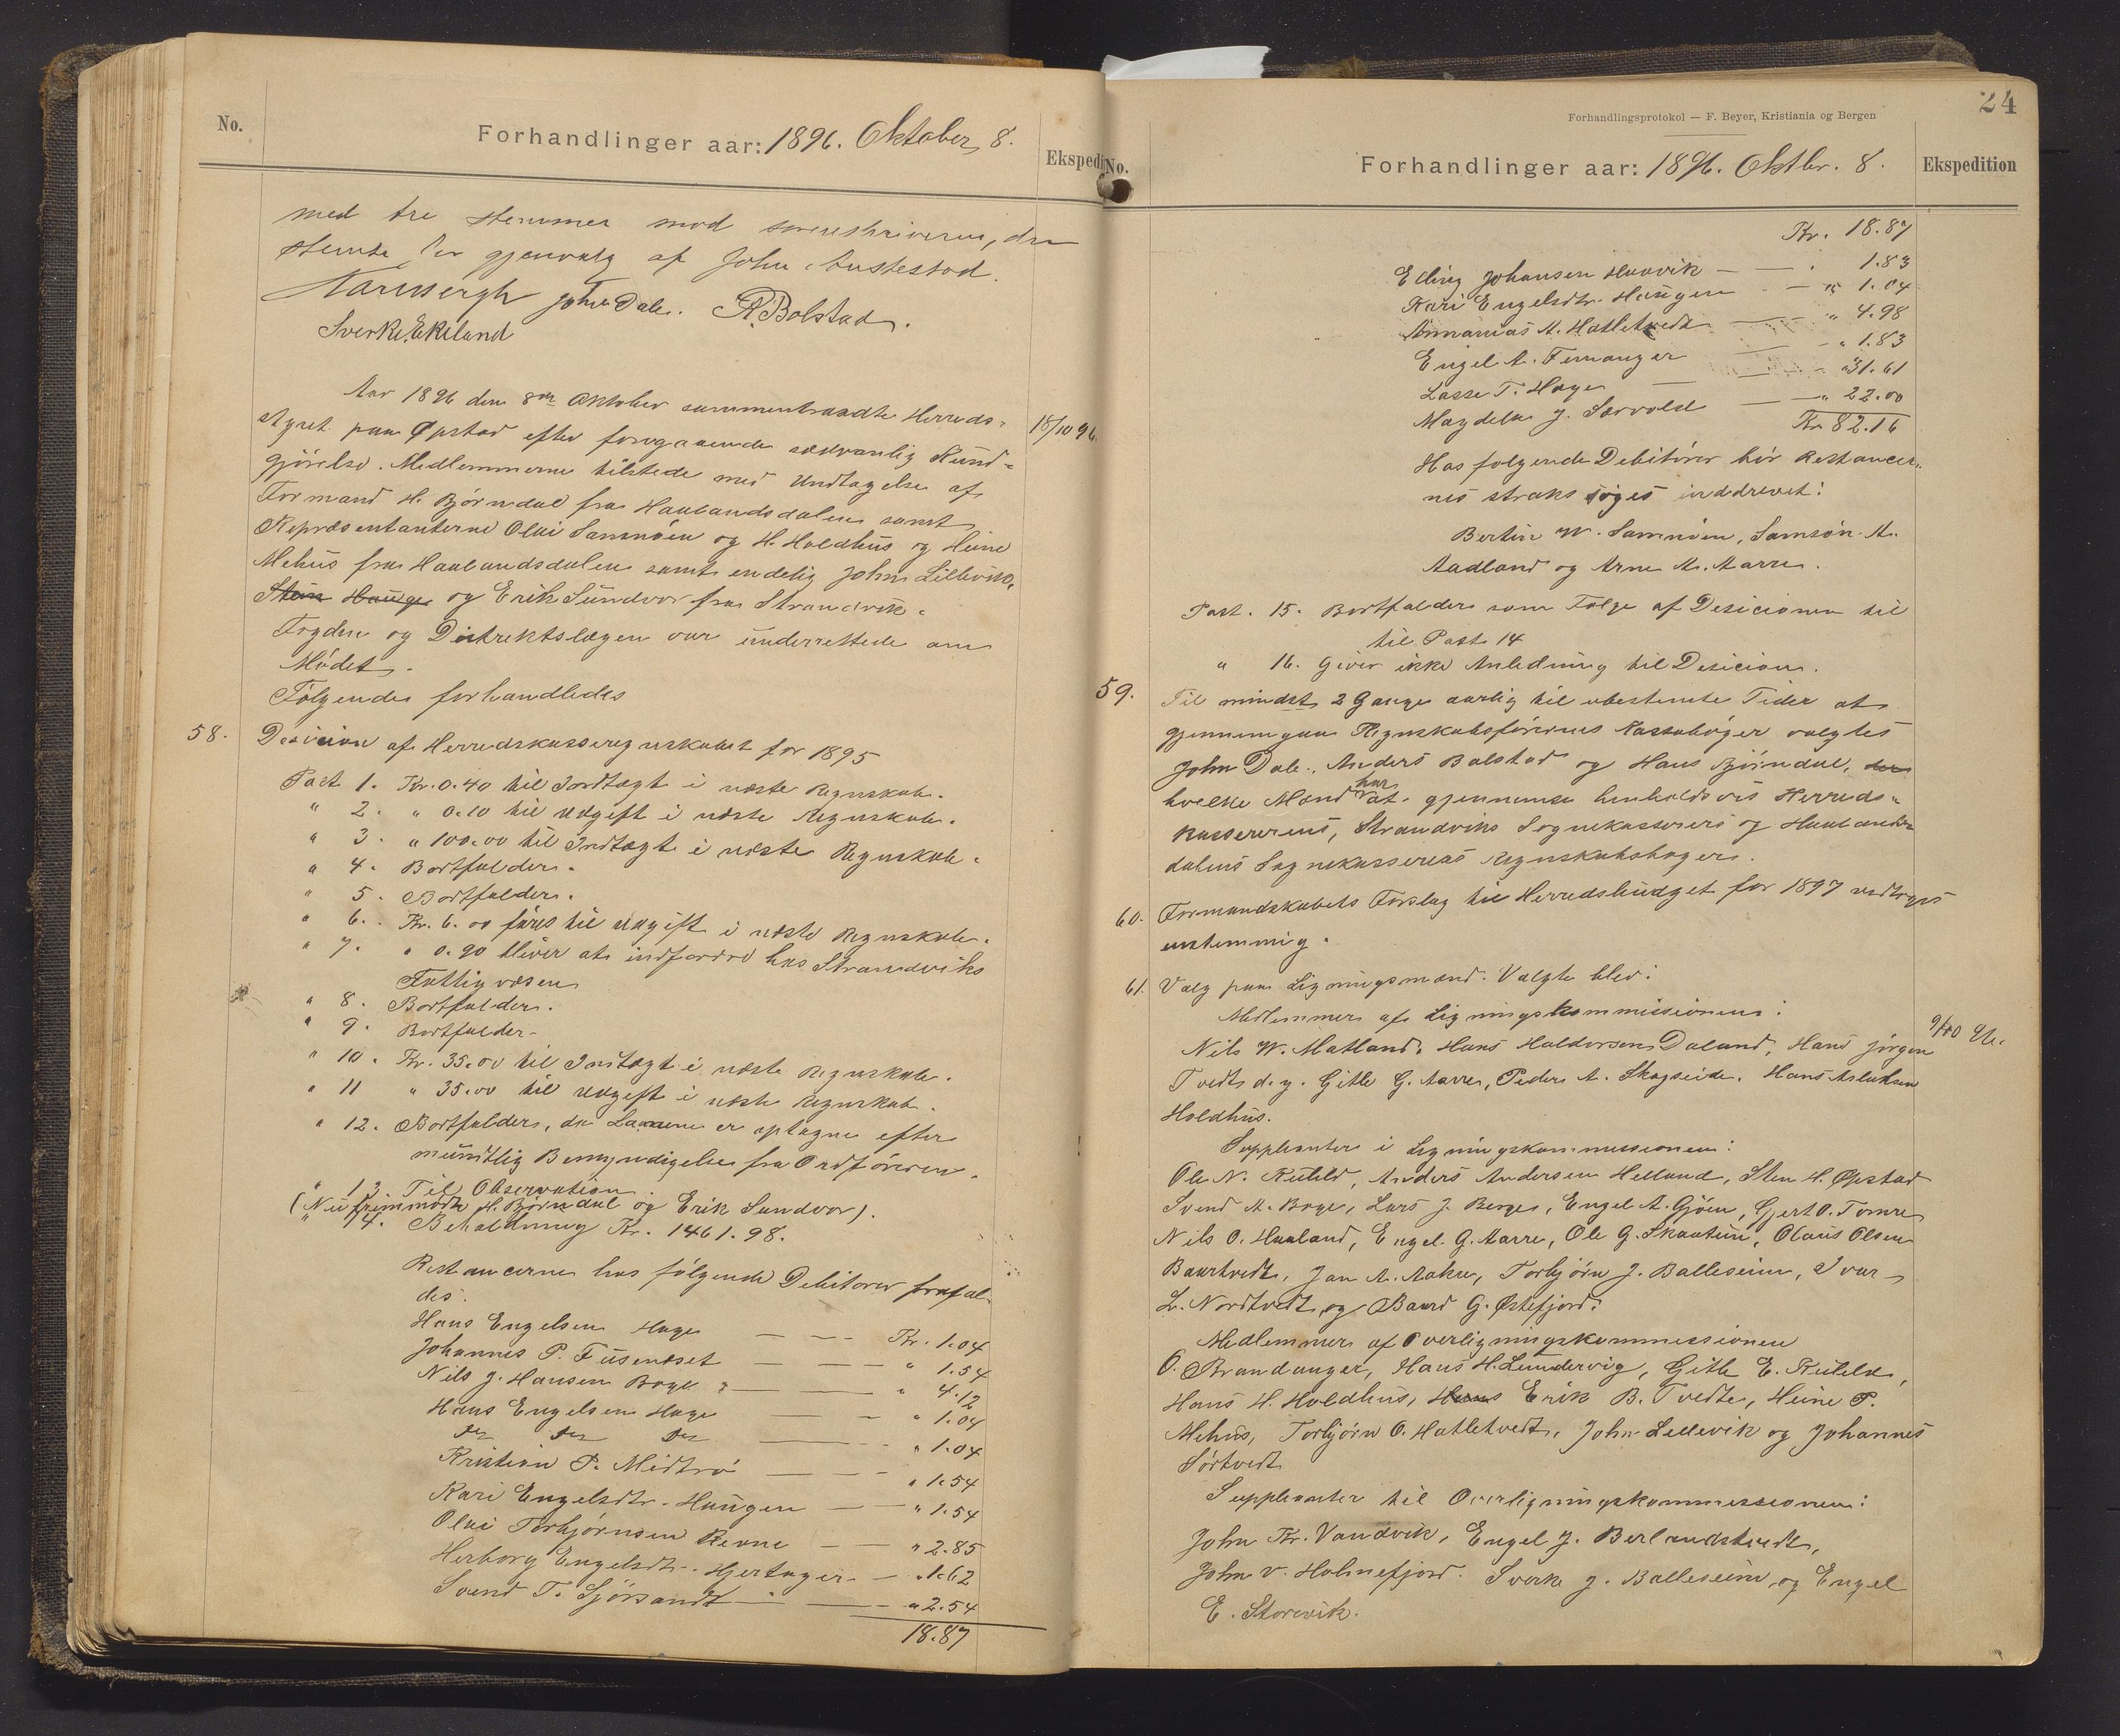 No.
Forhandlinger aar: 1896. Oktober 8.
Ekspedi
med tre Stemmer mod sorenskriveren, der
stemte for gjenvalg af John Austestad.
John Dale. A. Bolstad.
Sverke Ekeland
Aar 1896 den 8de Oktober sammentraadte Herreds-
styret paa Øpstad efter foregaaende sædvanlig Kund-
18/10 96.
gjörelse. Medlemmerne tilstede med Undtagelse af
Formand H. Björndal fra Haalandsdalen samt
Repræsentanterne Olai Samnöen og H. Holdhus og Heine
Mehus fra Haalandsdalen samt endelig John Lillevik,
Stein Hauge og Erik Sundvor fra Strandvik.
Fogden og Distriktslægen var underrettede om
Mödet.
Fölgende forhandledes
58. Desision af Herredskasseregnskabet for 1895
Post 1. Kr. 0.40 til Indtægt i næste Regnskab.
" 2. " 0.10 til Udgift i næste Regnskab.
" 3. " 100.00 til Indtægt i næste Regnskab.
" 4. Bortfalder.
" 5. Bortfalder.
" 6. Kr. 6.00 föres til Udgift i næste Regnskab.
" 7. " 0.90 bliver at indfordre hos Strandviks
Fattigvæsen
" 8. Bortfalder.
" 9. Bortfalder.
" 10. Kr. 35.00 til Indtægt i næste Regnskab.
" 11 " 35.00 til Udgift i næste Regnskab.
" 12. Bortfalder, da Laanene er optagne efter
mündtlig Bemyndigelse fra Ordföreren.
" 13 Til Observation.
(Nu fremmödte H. Björndal og Erik Sundvor).
" 14. Beholdning Kr. 1461.98.
Restancerne hos fölgende Debitorer frafal-
des:
Hans Engelsen Hage — — Kr. 1.04
Johannes P. Fusenæset — — " 1.54
Nils J. Hansen Boge — — " 4.12
Hans Engelsen Hage — — " 1.04
Do Do Do — — " 1.04
Kristian P. Midtrö — — " 1.54
Kari Engelsdtr. Haugen — — " 1.54
Olai Torbjörnsen Revne — — " 2.85
Herborg Engelsdtr. Hjertager — " 1.62
Svend T. Sjörsandt — — " 2.54
18.87
24
Forhandlingsprotokol — F. Beyer, Kristiania og Bergen
No.
Forhandlinger aar: 1896. Oktbr. 8.
Ekspedition
Kr. 18.87
Elling Johansen Haavik — — " 1.83
Kari Engelsdtr. Haugen — " 1.04
Annanias A. Hatletvedt — " 4.98
Engel A. Femanger — " 1.83
Lasse T. Hage — " 31.61
Magdela J. Sævold — " 22.00
Kr. 82.16
Hos folgende Debitórer bör Restancer-
nes straks söges inddrevet:
Bertin W. Samnöen, Samson A.
Aadland og Arne M. Aarre.
Post. 15. Bortfalder som Fölge af Desicionen til
til Post 14
" 16. Giver ikke Anledning til Desicion.
59. Til mindst 2 Gange aarlig til ubestemte Tider at
gjennemgaa Regnskabsförernes Kassaböger valgtes
John Dale, Anders Bolstad og Hans Björndal, der
hvilke Mænd har at gjennemse henholdsvis Herreds-
kassererens, Strandviks Sognekasserers og Haalands-
dalens Sognekassereres Regnskabsböger.
60. Formandskabets Forslag til Herredsbudget for 1897 vedtoges
enstemmig.
61. Valg paa Ligningsmænd. Valgte blev:
Medlemmer af Ligningskommissionen:
9/10 96.
Nils W. Matland, Hans Haldorsen Daland, Hans Jörgen
Tvedt d.y. Gitle G. Aarre, Peder A. Skogseide. Hans Aslaksen
Holdhus.
Suppleanter i Ligningskommissionen:
Ole N. Kilded, Anders Andersen Helland, Sten H. Øpstad
Svend A. Boge, Lars J. Berge, Engel A. Gjöen, Gjert O. Tomre
Nils O. Haaland, Engel G. Aarre, Ole G. Skaatun, Olaus Olsen
Baartvedt, Jan A. Aake, Torbjörn J. Balleseim, Ivar
L. Nordtvedt, og Baard G. Østefjord.
Medlemmer af Overligningskommissionen
O. Brandanger, Hans H. Lundervig, Gitle E. Kilded,
Hans H. Holdhus, Hans Erik B. Tvedte, Heine P.
Mehus, Torbjörn O. Hatletvedt, John Lillevik og Johannes
Sörtvedt
Suppleanter til Overligningskommissionen:
John Kr. Vandvik, Engel J. Berlandstvedt,
John V. Holmefjord. Sverke J. Balleseim, og Engel
E. Storevik.